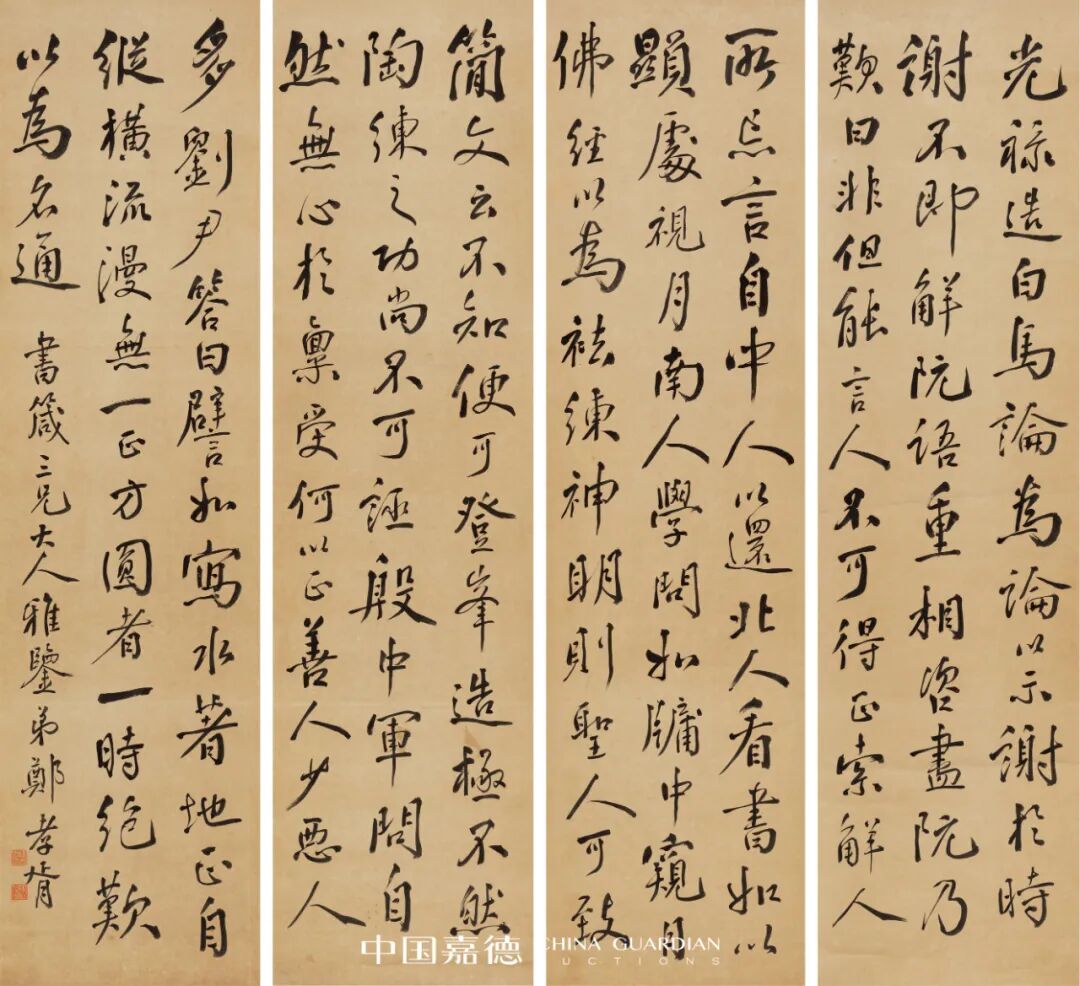 光祿造白馬論為論以示謝於時
謝不即解阮語重相咨盡阮乃
歎曰非但能言人不可得正索解人
所忘言自中人以還北人看書如以
顯處視月南人學問如牖中窺日
佛經以為祛練神明則聖人可致
簡文云不知便可登峯造極不然
陶練之功尚不可誣殷中軍問自
然無心於稟受何以正善人少惡人
多劉尹答曰譬如寫水著地正自
縱橫流漫無一正方圓者一時絕歎
以為名通 書箴三兄大人雅鑒弟鄭孝胥
中国嘉德
CHINA GUARDIAN
AUCTIONS